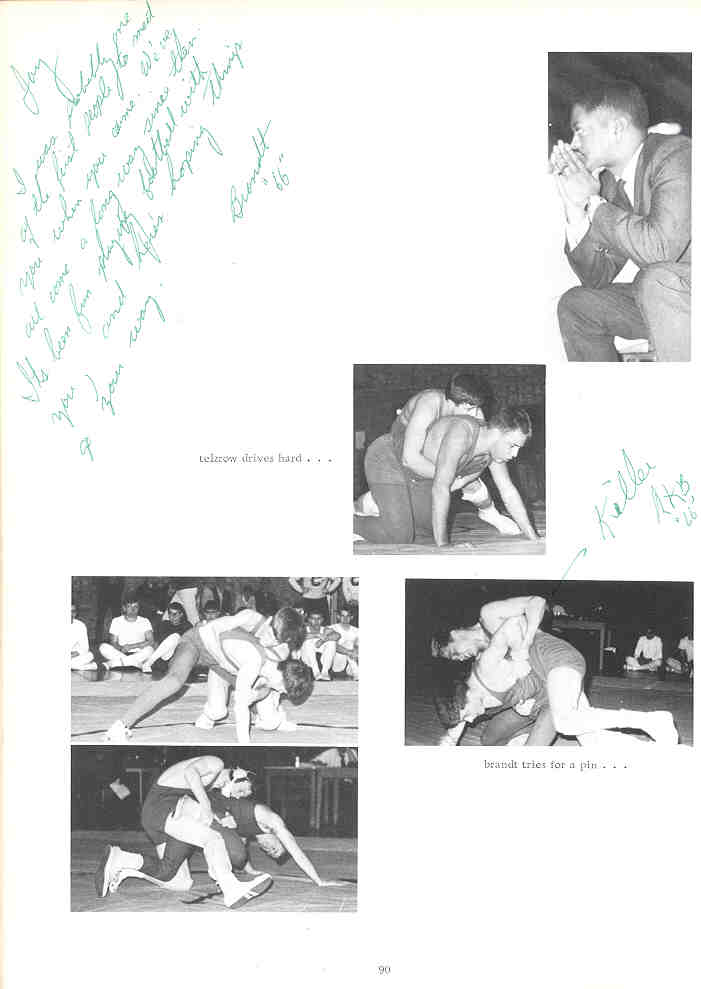 Jay
I was probably one
of the first people to meet
you when you came. We've
all come a long way since then.
It's been fun playing football with
you and here's hoping things
go your way.
Brandt
"66"
telzrow drives hard . . .
Killer
"66"
brandt tries for a pin . . .
90